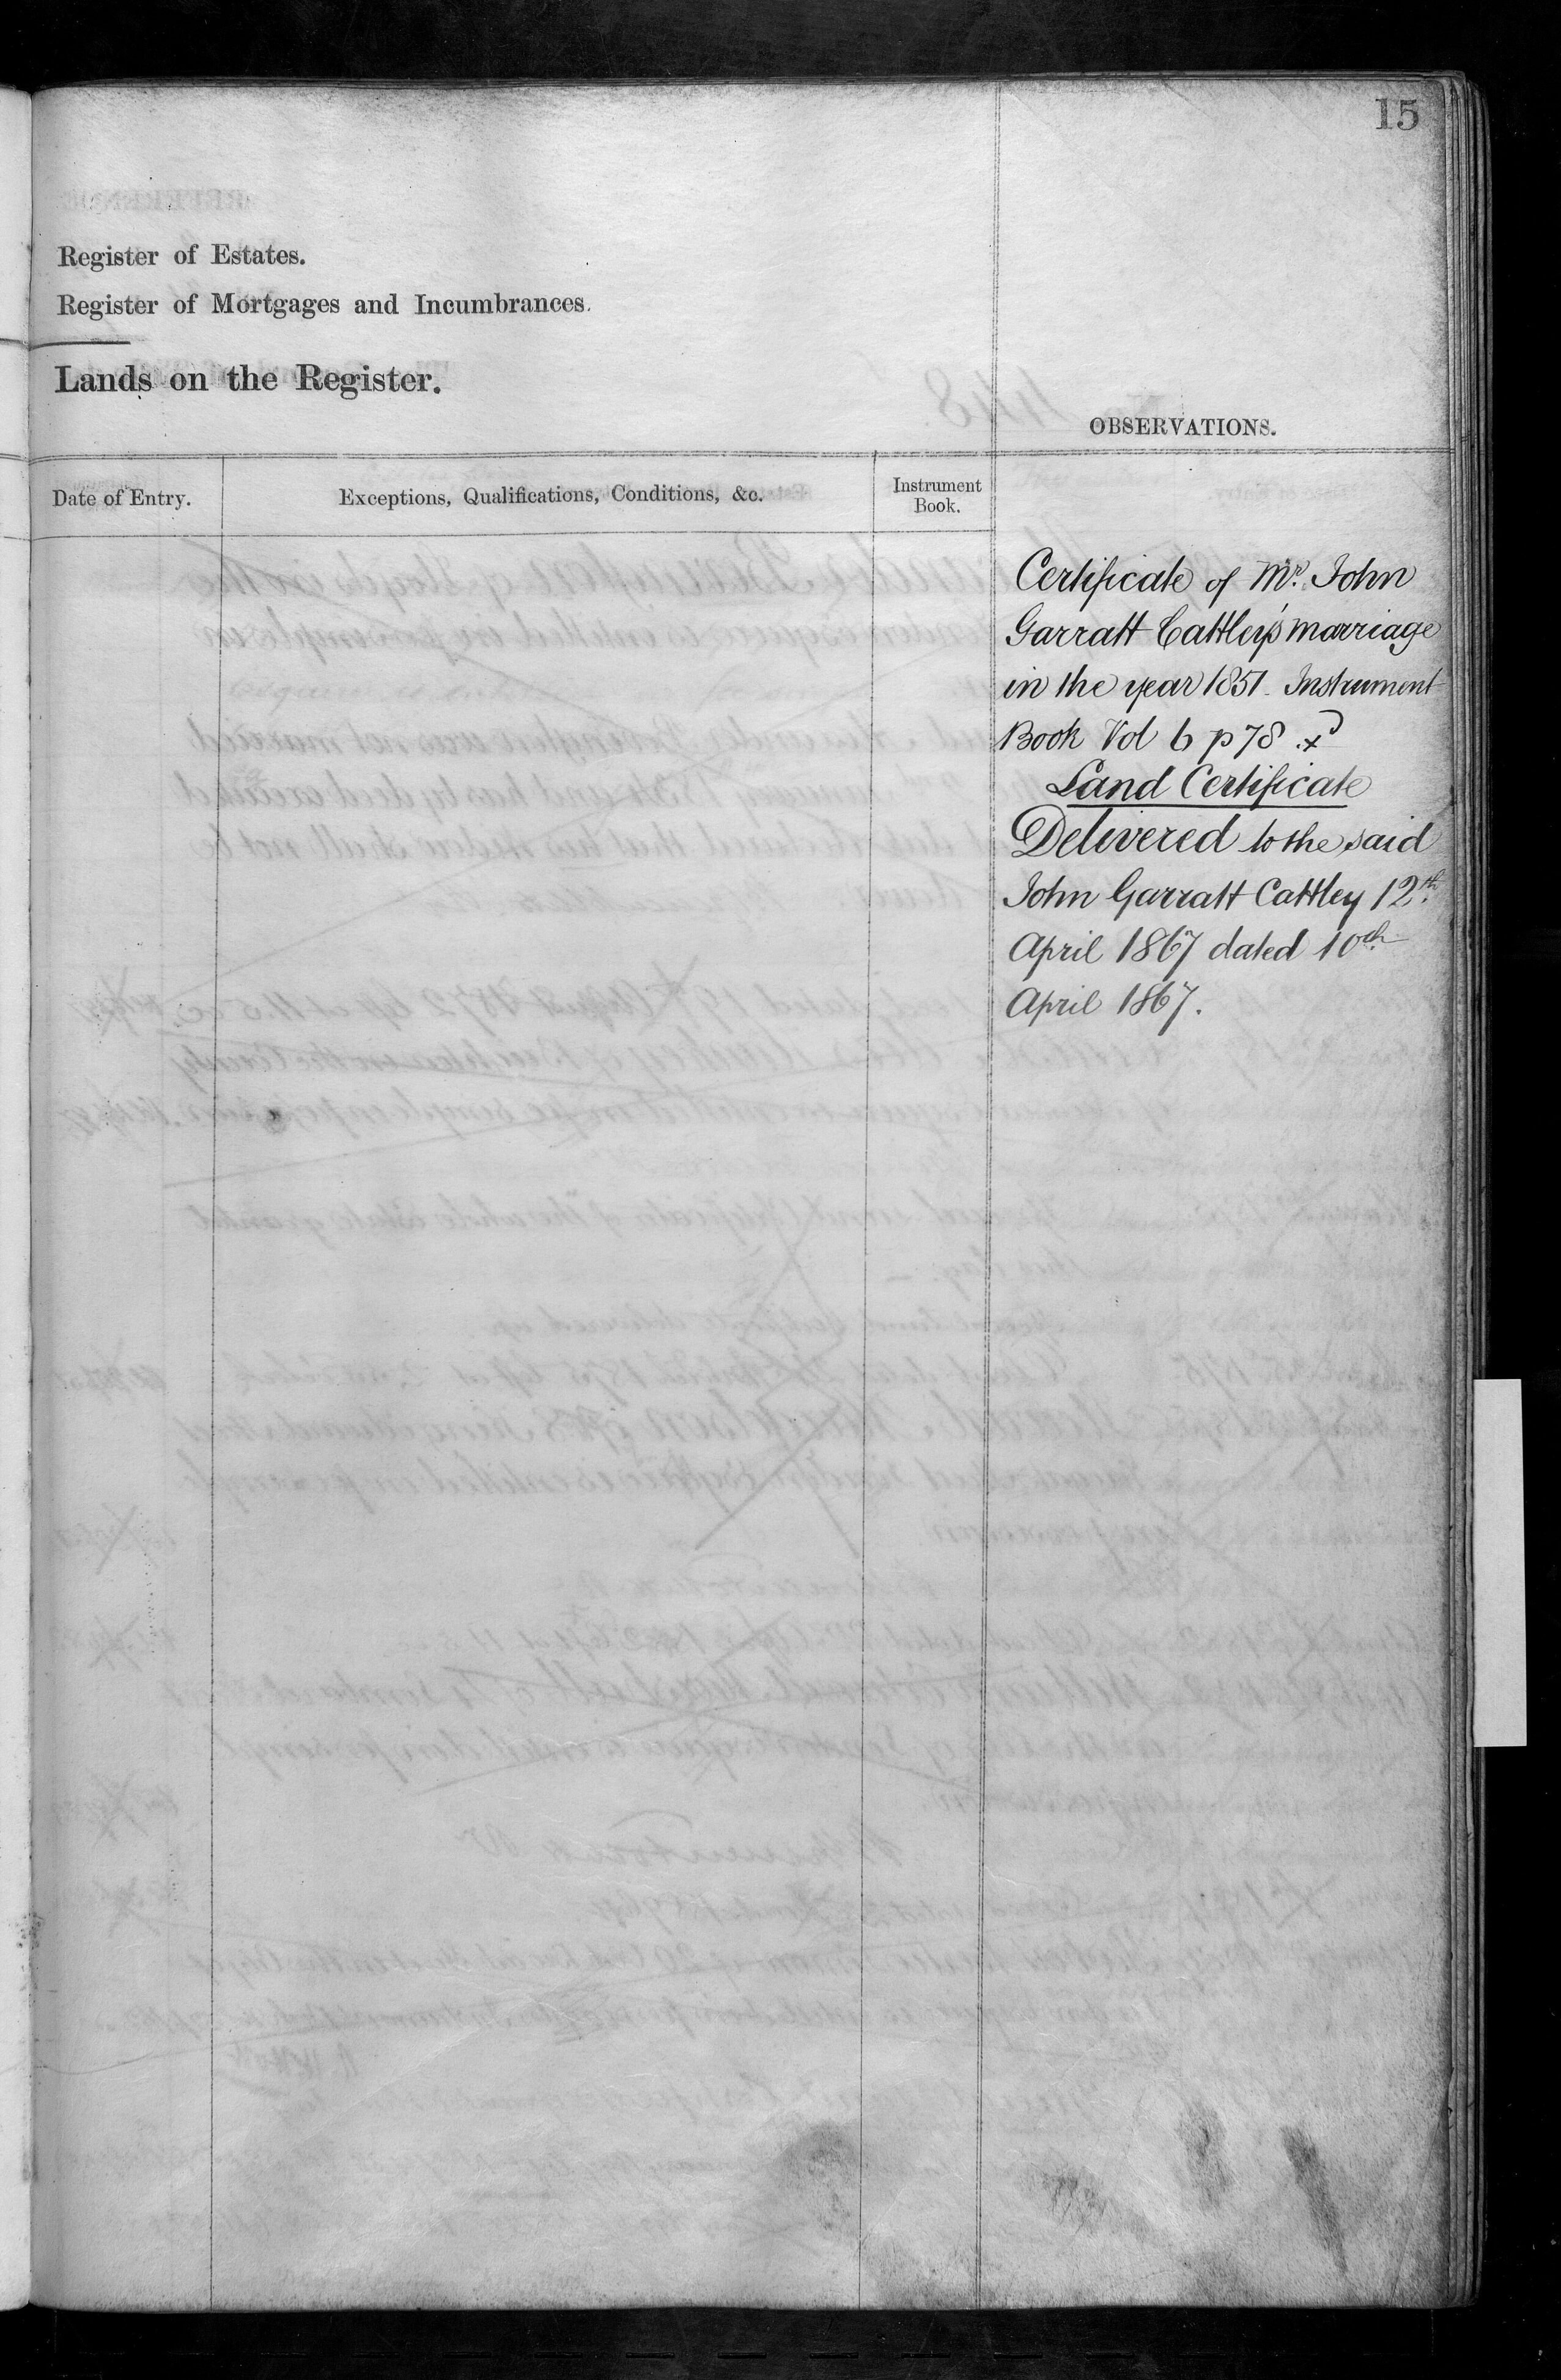 15
Register of Estates.
Register of Mortgages and Incumbrances.
Lands on the Register.
OBSERVATIONS.
Date of Entry.
Exceptions, Qualifications, Conditions, &c.
Instrument
Book.
Certificate of Mr. John
Garratt Cattley's marriage
in the year 1851. Instrument
Book Vol 6 p 78
Land Certificate
Delivered to the said
John Garratt Cattley 12th
April 1867 dated 10th
April 1867.